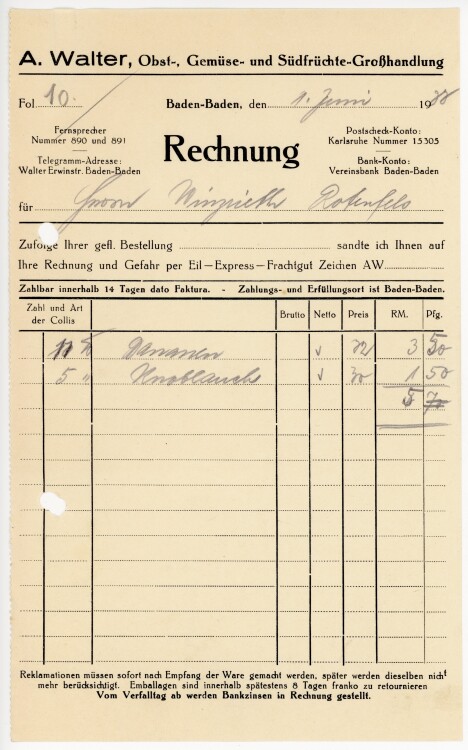 A. Walter, Obst-, Gemüse- und Südfrüchte-Großhandlung
Fol 10. Baden-Baden, den 1. Juni 19
Fernsprecher
Nummer 890 und 891
Telegramm-Adresse:
Walter Erwinstr. Baden-Baden
Rechnung
Postscheck-Konto:
Karlsruhe Nummer 15305
Bank-Konto:
Vereinsbank Baden-Baden
für Herrn Rotenfels
Zufolge Ihrer gefl. Bestellung sandte ich Ihnen auf
Ihre Rechnung und Gefahr per Eil—Express—Frachtgut Zeichen AW
Zahlbar innerhalb 14 Tagen dato Faktura. - Zahlungs- und Erfüllungsort ist Baden-Baden.
Zahl und Art der Collis Brutto Netto Preis RM. Pfg.
11 3 50
5 " Knoblauch 30 1 50
5
Reklamationen müssen sofort nach Empfang der Ware gemacht werden, später werden dieselben nicht
mehr berücksichtigt. Emballagen sind innerhalb spätestens 8 Tagen franko zu retournieren
Vom Verfalltag ab werden Bankzinsen in Rechnung gestellt.